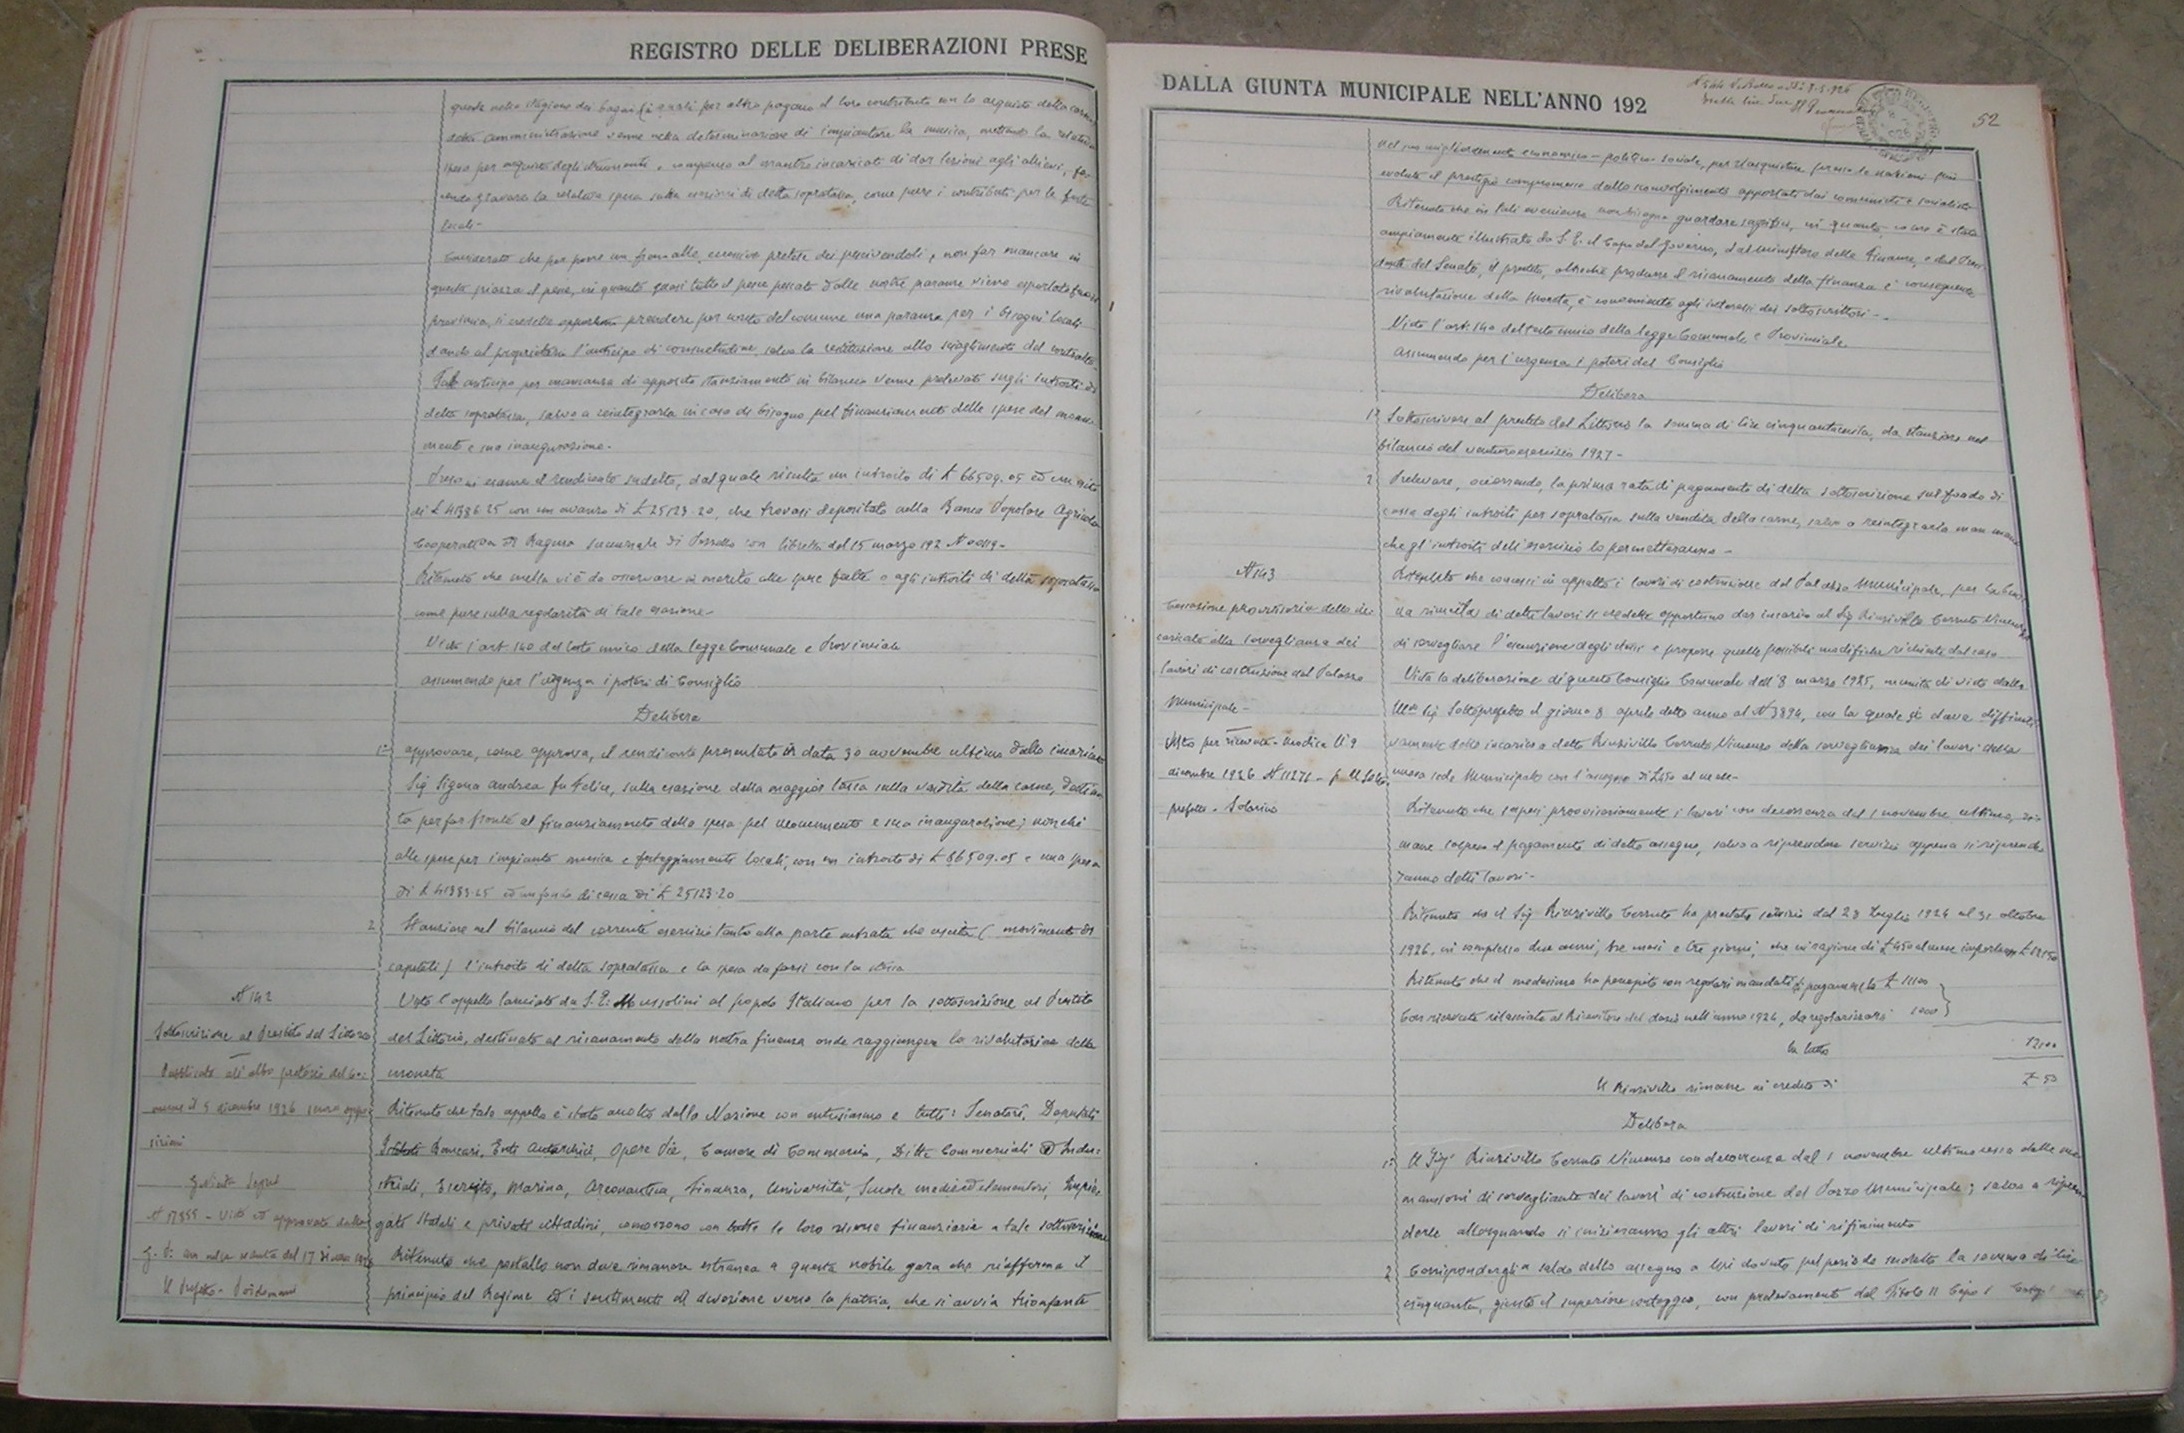 REGISTRO DELLE DELIBERAZIONI PRESE
queste nella stagione dei bagni (i quali per altro pagano il loro contributo con lo acquisto della carne
detta amministrazione venne nella determinazione di impiantare la musica, mettendo la relativa
spesa per acquisto degli strumenti, compenso al maestro incaricati di dar lezioni agli allievi, fa-
cendo gravare la relativa spesa sulla esazioni di detta sopratassa, come pure i contributi per le feste
locali-
Considerato che per porre un freno alle eccessive pretese dei pescivendoli, e non far mancare in
questa piazza il pesce, in quanto quasi tutto il pesce pescato dalle nostre paranze viene esportato fuori
provincia, si credette opportuno prendere per conto del comune una paranza per i bisogni locali
dando al proprietario l'anticipo di consuetudine, salvo la restituzione allo scioglimento del contratto-
Tale anticipo per mancanza di apposito stanziamento in bilancio venne prelevato sugli introiti di
detta sopratassa, salvo a reintegrarla in caso di bisogno pel finanziamento delle spese del monu-
mento e sua inaugurazione-
Preso in esame il rendiconto sudetto, dal quale risulta un introito di £ 66509.05 ed un esito
di £ 41386.25 con un avanzo di £ 25123.20, che trovasi depositato nella Banca Popolare Agricola
Cooperativa di Ragusa succursale di Pozzallo con libretto del 15 marzo 192 N
Ritenuto che nulla vi è da osservare in merito alle spese fatte e agli introiti di detta sopratassa
come pure sulla regolarità di tale esazione-
Visto l'art 140 del testo unico della legge Comunale e Provinciale
assumendo per l'urgenza i poteri di Consiglio
Delibera
1° approvare, come approva, il rendiconto presentato in data 30 novembre ultimo dallo incaricato
Sig Sigona Andrea fu Felice, sulla esazione della maggior tassa sulla vendita della carne, destina
ta per far fronte al finanziamento della spesa pel monumento e sua inaugurazione; nonchè
alle spese per impianto musica e festeggiamenti locali, con un introito di £ 66509.05 e una spesa
di £ 41383.25 ed un fondo di cassa di £ 25123.20
2 Stanziare nel bilancio del corrente esercizio tanto alla parte entrata che uscita (movimento di
capitali) l'introito di detta sopratassa e la spesa da farsi con la stessa
N 142
Sottoscrizione al Prestito del Littorio
Pubblicato all'albo pretorio del Co-
mune il 5 dicembre 1926 senza oppo-
sizioni
Il Prefetto-
Visto l'appello lanciato da S. E. Mussolini al popolo Italiano per la sottoscrizione al Prestito
del Littorio, destinato al risanamento della nostra finanza onde raggiungere la rivalutazione della
moneta
Ritenuto che tale appello è stato accolto dalla Nazione con entusiasmo e tutti: Senatori, Deputati
Istituti Bancari, Enti Autarchici, Opere Pie, Camere di Commercio, Ditte Commerciali ed Indu-
striali, Esercito, Marina, Areonautica, Finanza, Università, Scuole medie ed elementari, Impie-
gati Statali e privati cittadini, concorrono con tutte le loro risorse finanziarie a tale sottoscrizione
Ritenuto che Pozzallo non deve rimanere estranea a questa nobile gara che riafferma il
principio del Regime ed i sentimenti di devozione verso la patria, che si avvia trionfante
DALLA GIUNTA MUNICIPALE NELL'ANNO 192
52
nel suo miglioramento economico-politico-sociale, per riacquistare presso le nazioni più
evolute il prestigio compromesso dallo sconvolgimento apportato dai comunisti e socialisti
Ritenuto che in tali evenienze non bisogna guardare sagrifici, in quanto, come è stato
ampiamente illustrato da S. E. il Capo del Governo, dal Ministero delle Finanze, e dal Presi-
dente del Senato, il prestito, oltrechè produrre il risanamento della finanza e conseguente
rivalutazione della moneta, è conveniente agli interessi dei sottoscrittori-
Visto l'art: 140 del testo unico della legge Comunale e Provinciale
assumendo per l'urgenza i poteri del Consiglio
Delibera
1° Sottoscrivere al prestito del Littorio la somma di lire cinquantamila, da stanziare nel
bilancio del venturo esercizio 1927-
2 Prelevare, occorrendo, la prima rata di pagamento di detta sottoscrizione sul fondo di
cassa degli introiti per sopratassa sulla vendita della carne, salvo a reintegrarla man mano
che gl'introiti dell'esercizio lo permetteranno-
N 143
Cessazione provvisoria dello in-
caricato alla sorveglianza dei
lavori di costruzione del Palazzo
Municipale-
Visto per ricevuta-Modica li 9
dicembre 1926 N 11276 - p Il Sotto-
prefetto - Solarino
che concessi in appalto i lavori di costruzione del Palazzo Municipale, per la buo-
na riuscita di detti lavori si credette opportuno dar incarico al Sig Rinzivillo Cerruto Vincenzo
di sorvegliare l'esecuzione degli stessi e proporre quelle possibili modifiche richieste dal caso
Vista la deliberazione di questo Consiglio Comunale dell'8 marzo 1925, munita di visto dalla
Ill° Sig Sottoprefetto il giorno 8 aprile detto anno al N 3894, con la quale si dava diffiniti-
vamente dello incarico a detto Rinzivillo Cerruto Vincenzo della sorveglianza dei lavori della
nuova sede Municipale con l'assegno di £450 al mese-
Ritenuto che sospesi provvisoriamente i lavori con decorrenza del 1 novembre ultimo, ri-
mane sospeso il pagamento di detto assegno, salvo a riprendere servizio appena si riprende-
ranno detti lavori-
Ritenuto che il Sig Rinzivillo Cerruto ha prestato servizio dal 28 Luglio 1924 al 31 ottobre
1926, in complesso due anni, tre mesi e tre giorni, che in ragione di £450 al mese importano £ 12150
Ritenuto che il medesimo ha percepito con regolari mandati di pagamento £ 11100
Con ricevute rilasciate al Ricevitore del dazio nell'anno 1926, da regolarizzarsi 1000
In tutto 12100
Il Rinzivillo rimane in credito di £ 50
Delibera
1° Il Sig: Rinzivillo Cerruto Vincenzo con decorrenza dal 1 novembre ultimo cessa dalle sue
mansioni di sorvegliante dei lavori di costruzione del Pazzo Municipale; salvo a ripren-
derle allorquando si inizieranno gli altri lavori di rifinimento
2 Corrispondergli a saldo dello assegno a lui dovuto pel periodo suddetto la somma di lire
cinquanta, giusto il superiore conteggio, con prelevamento dal Titolo II Capo I